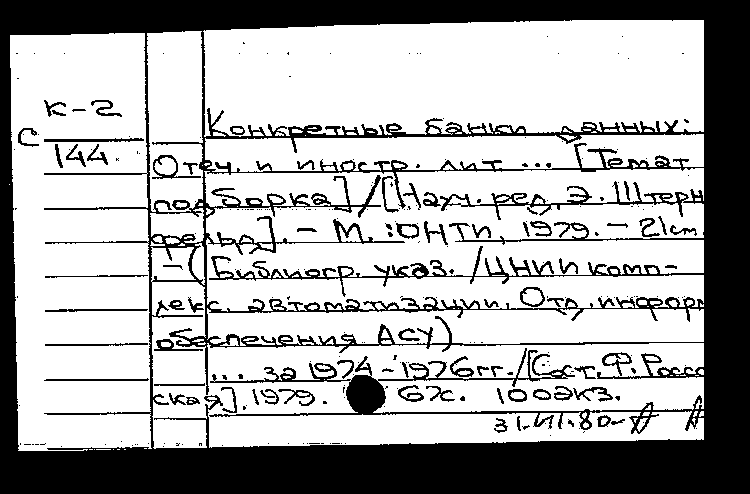 К-2
С
144.
Конкретные банки данных:
Отеч. и иностр. лит ... [Темат
подборка] / [Науч. ред. Э. Штерн
фельд]. - М. : ОНТИ, 1979. - 21 см.
- ( Библиогр. указ. / ЦНИИ комп-
лекс. автоматизации. Отд. информ
обеспечения АСУ)
... за 1974 - 1976 гг. / [Сост. Ф. Россо
ская]. 1979. 67с. 100экз.